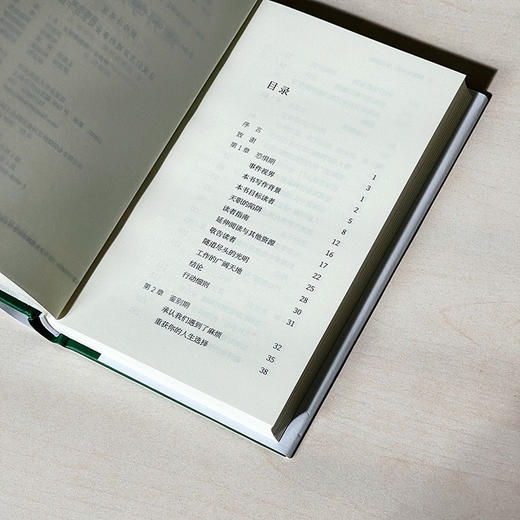 目录
序言 1
致谢 3
第1章 恐惧期 1
事件视界 2
本书写作背景 5
本书目标读者 8
天职的陷阱 12
读者指南 16
延伸阅读与其他资源 17
敬告读者 22
隧道尽头的光明 25
工作的广阔天地 28
结论 30
行动细则 31
第2章 鉴别期 32
承认我们遇到了麻烦 35
重获你的人生选择 38